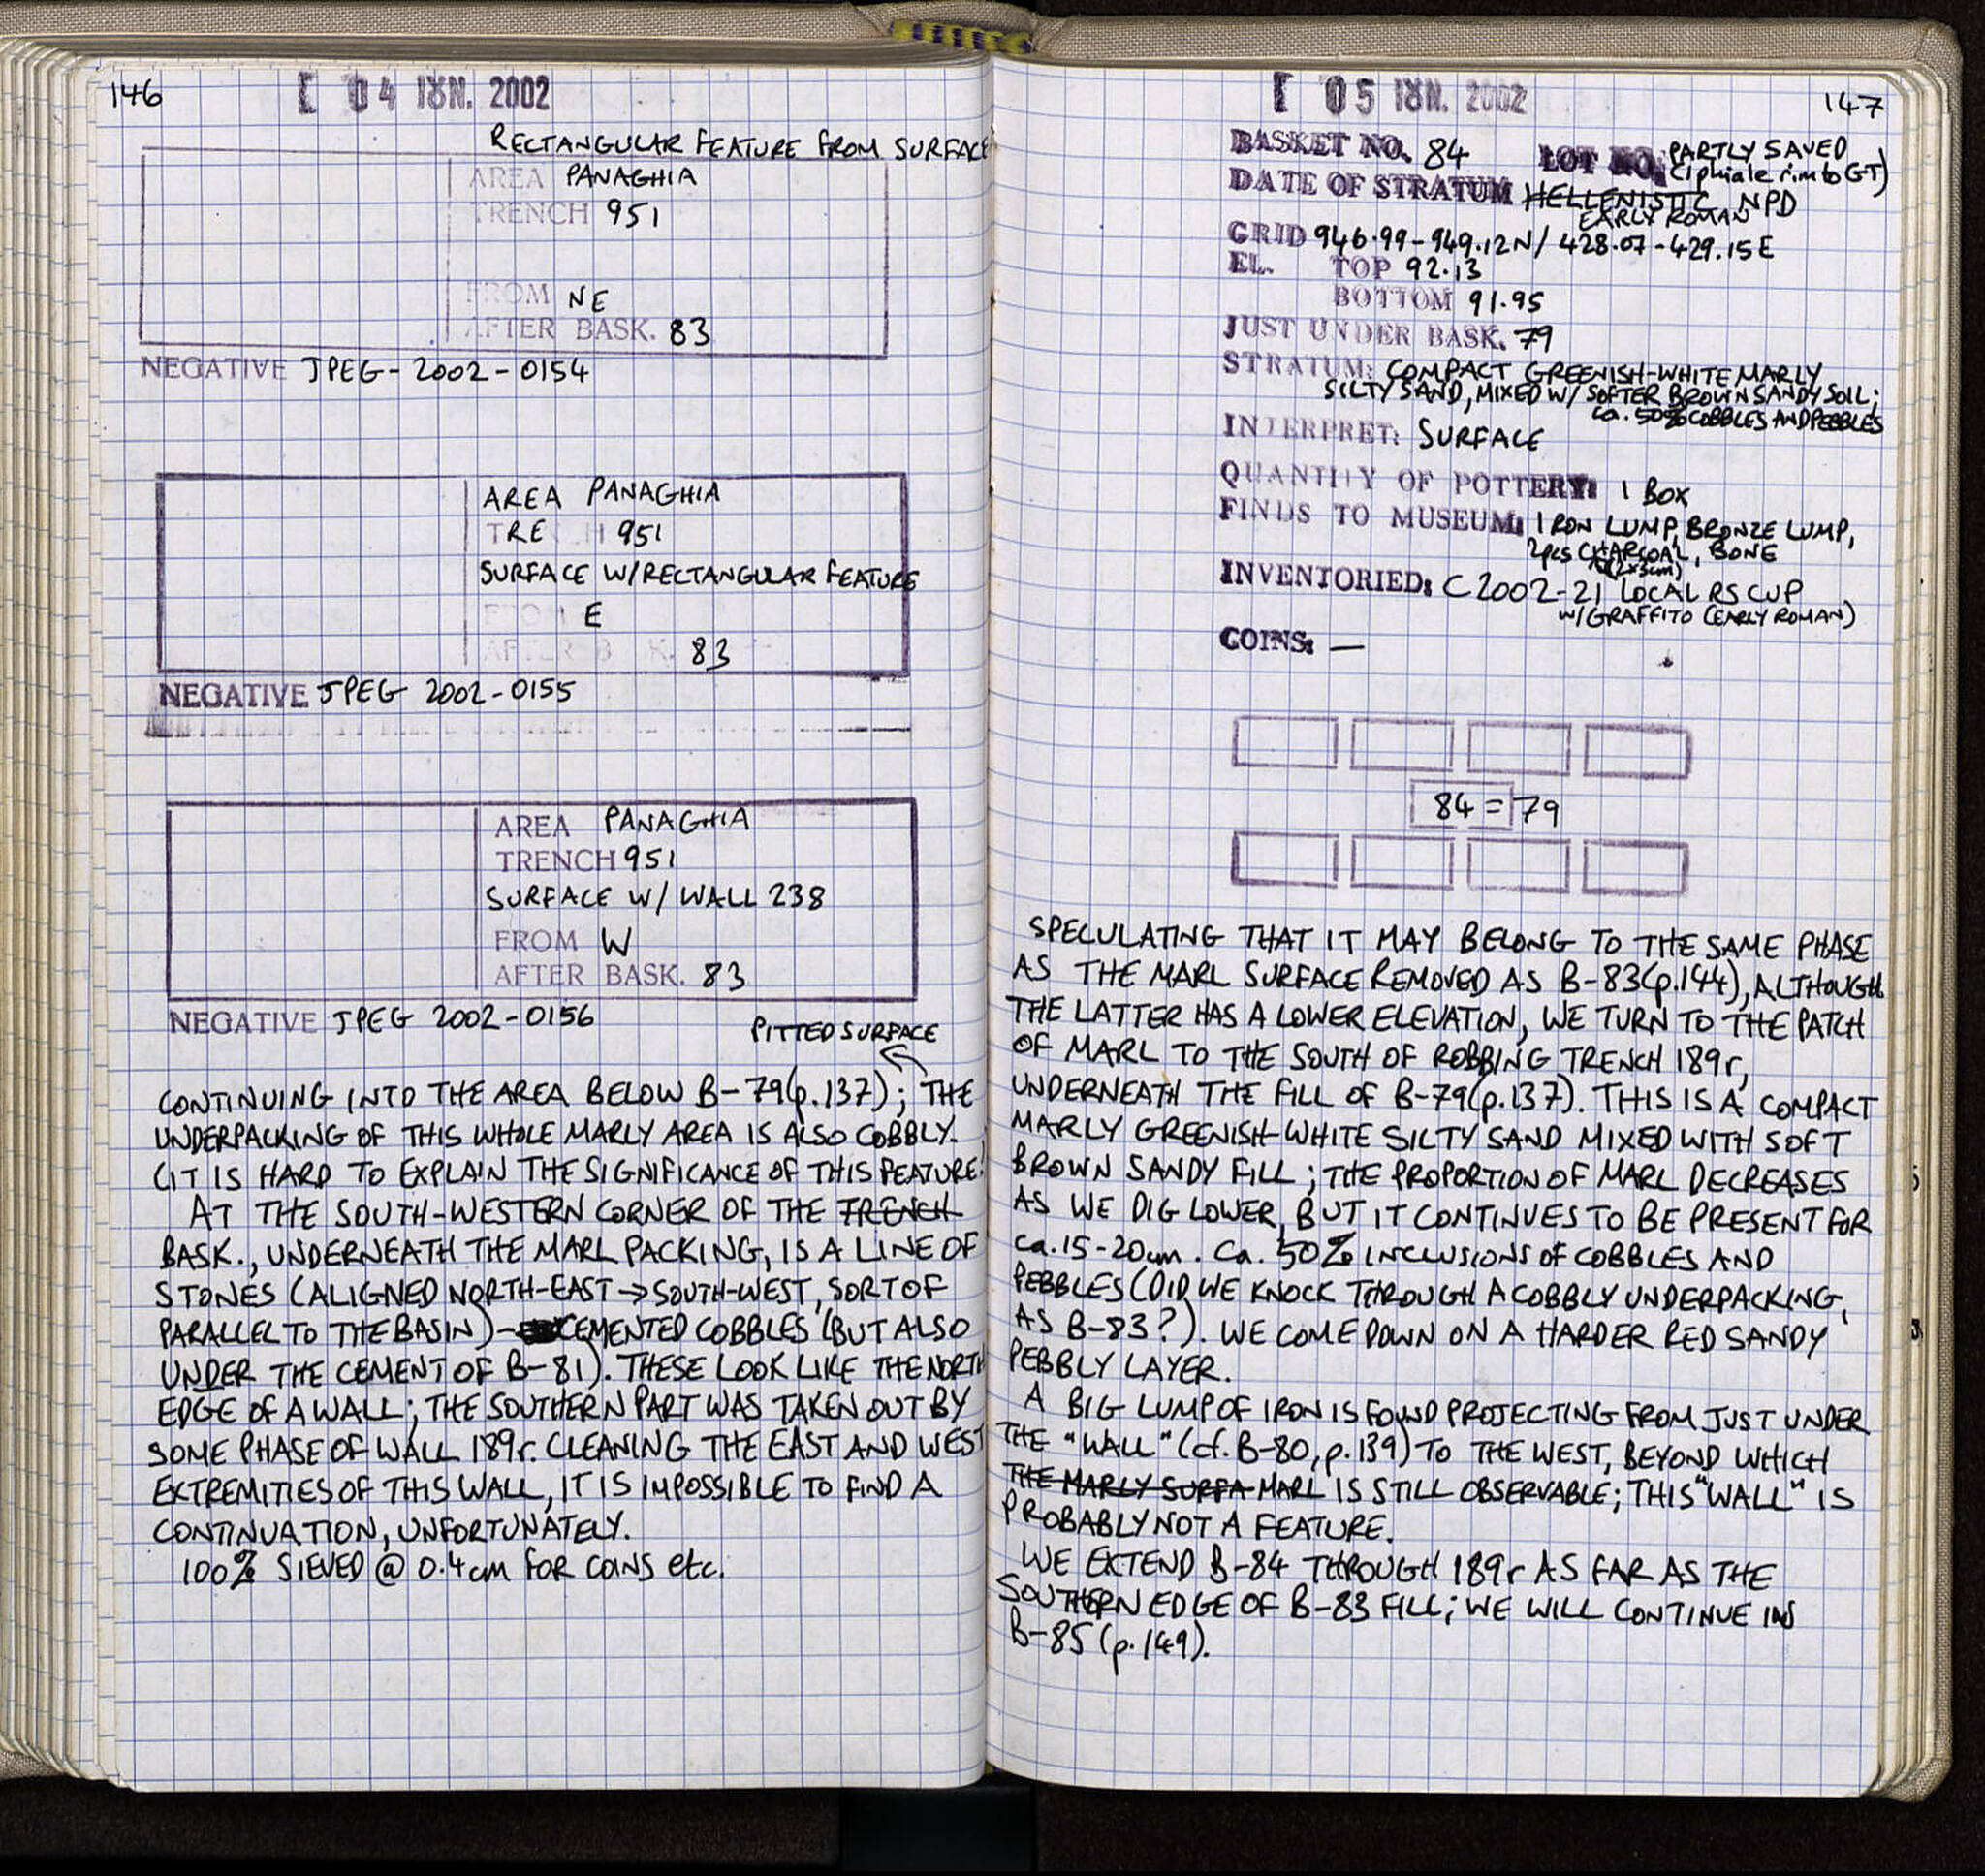 146
[ 04 ΙΟΥΝ. 2002
RECTANGULAR FEATURE FROM SURFACE
AREA PANAGHIA
TRENCH 951
FROM NE
AFTER BASK. 83
NEGATIVE JPEG-2002-0154
AREA PANAGHIA
TRENCH 951
SURFACE W/RECTANGULAR FEATURE
FROM E
AFTER BASK. 83
NEGATIVE JPEG 2002-0155
AREA PANAGHIA
TRENCH 951
SURFACE W/ WALL 238
FROM W
AFTER BASK. 83
NEGATIVE JPEG 2002-0156
PITTED SURFACE
CONTINUING INTO THE AREA BELOW B-79(p.137); THE
UNDERPACKING OF THIS WHOLE MARLY AREA IS ALSO COBBLY.
(IT IS HARD TO EXPLAIN THE SIGNIFICANCE OF THIS FEATURE!
AT THE SOUTH-WESTERN CORNER OF THE TRENCH
BASK., UNDERNEATH THE MARL PACKING, IS A LINE OF
STONES (ALIGNED NORTH-EAST → SOUTH-WEST, SORT OF
PARALLEL TO THE BASIN) - CEMENTED COBBLES (BUT ALSO
UNDER THE CEMENT OF B-81). THESE LOOK LIKE THE NORTH
EDGE OF A WALL; THE SOUTHERN PART WAS TAKEN OUT BY
SOME PHASE OF WALL 189r. CLEANING THE EAST AND WEST
EXTREMITIES OF THIS WALL, IT IS IMPOSSIBLE TO FIND A
CONTINUATION, UNFORTUNATELY.
100% SIEVED @ 0.4cm FOR COINS etc.
[ 05 ΙΟΥΝ. 2002
147
BASKET NO. 84 LOT NO. PARTLY SAVED
(1 phiale rim to GT)
DATE OF STRATUM HELLENISTIC NPD
EARLY ROMAN
GRID 946.99-949.12N/ 428.07-429.15E
EL. TOP 92.13
BOTTOM 91.95
JUST UNDER BASK. 79
STRATUM: COMPACT GREENISH-WHITE MARLY
SILTY SAND, MIXED W/ SOFTER BROWN SANDY SOIL;
ca. 50% COBBLES AND PEBBLES
INTERPRET: SURFACE
QUANTITY OF POTTERY: 1 BOX
FINDS TO MUSEUM: IRON LUMP, BRONZE LUMP,
2pcs CHARCOAL, BONE
(2x3cm)
INVENTORIED: C2002-21 LOCAL RS CUP
W/GRAFFITO (EARLY ROMAN)
COINS: —
84 = 79
SPECULATING THAT IT MAY BELONG TO THE SAME PHASE
AS THE MARL SURFACE REMOVED AS B-83(p.144), ALTHOUGH
THE LATTER HAS A LOWER ELEVATION, WE TURN TO THE PATCH
OF MARL TO THE SOUTH OF ROBBING TRENCH 189r,
UNDERNEATH THE FILL OF B-79(p.137). THIS IS A COMPACT
MARLY GREENISH-WHITE SILTY SAND MIXED WITH SOFT
BROWN SANDY FILL; THE PROPORTION OF MARL DECREASES
AS WE DIG LOWER, BUT IT CONTINUES TO BE PRESENT FOR
ca.15-20cm. Ca. 50% INCLUSIONS OF COBBLES AND
PEBBLES (DID WE KNOCK THROUGH A COBBLY UNDERPACKING,
AS B-83?). WE COME DOWN ON A HARDER RED SANDY
PEBBLY LAYER.
A BIG LUMP OF IRON IS FOUND PROJECTING FROM JUST UNDER
THE "WALL" (cf. B-80, p.139) TO THE WEST, BEYOND WHICH
THE MARLY SURFA MARL IS STILL OBSERVABLE; THIS "WALL" IS
PROBABLY NOT A FEATURE.
WE EXTEND B-84 THROUGH 189r AS FAR AS THE
SOUTHERN EDGE OF B-83 FILL; WE WILL CONTINUE IN
B-85 (p.149).